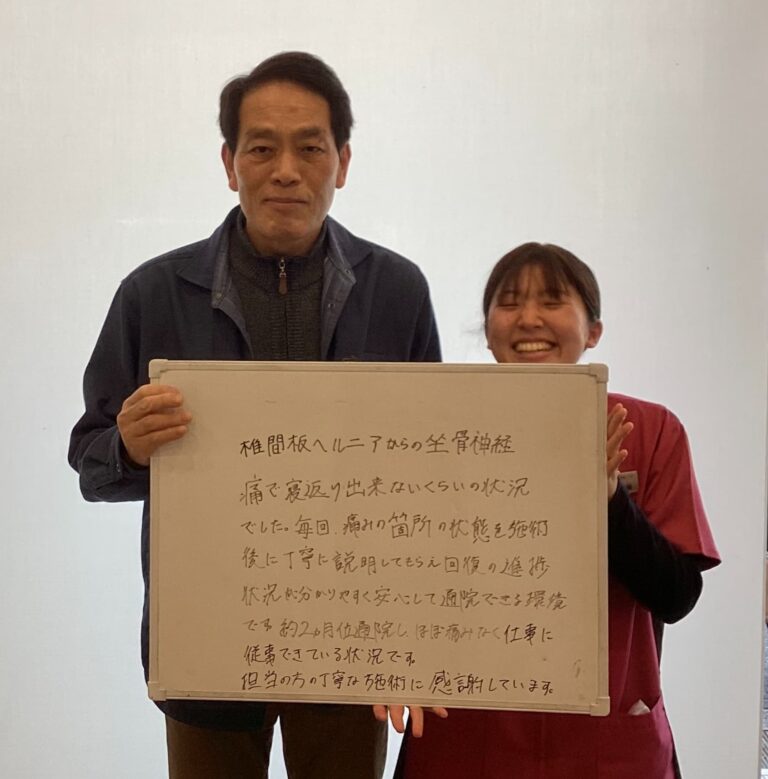 椎間板ヘルニアからの坐骨神経
痛で寝返り出来ないくらいの状況
でした。毎回、痛みの箇所の状態を施術
後に丁寧に説明してもらえ回復の進捗
状況が分かりやすく安心して通院できる環境
です。約2ヵ月位通院し、ほぼ痛みなく仕事に
従事できている状況です。
担当の方の丁寧な施術に感謝しています。